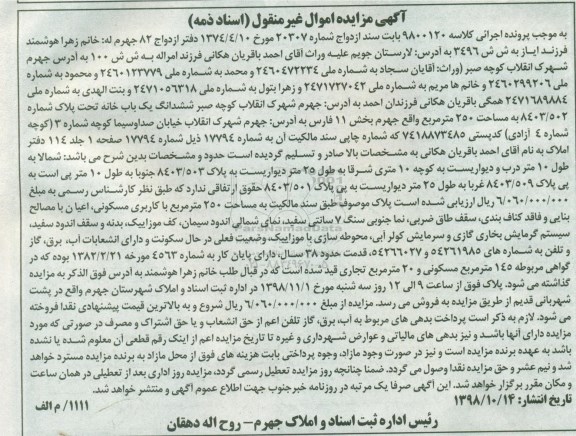 آگهی مزایده اموال غیرمنقول (اسناد ذمه)
به موجب پرونده اجرائی کلاسه ۹۸۰۰۱۲۰ بابت سند ازدواج شماره ۲۰۳۰۷ مورخ ۱۳۷۴/۴/۱۰ دفتر ازدواج ۸۲ جهرم له: خانم زهرا هوشمند
فرزند ایاز به ش ش ۳۴۹۶ به آدرس: لارستان جویم علیه وراث آقای احمد باقریان هکانی فرزند امراله به ش ش ۱۰۰ به آدرس جهرم
شهرک انقلاب کوچه صبر (وراث: آقایان سجاد به شماره ملی ۲۴۶۰۴۷۲۲۳۴ و محمد به شماره ملی ۲۴۶۰۱۲۳۷۷۹ و محمود به شماره
ملی ۲۴۶۰۲۹۹۲۰۶ و خانم ها مریم به شماره ملی ۲۴۷۱۷۳۷۰۴۲ و زهرا بتول به شماره ملی ۲۴۷۱۰۵۶۳۱۸ و بنت الهدی به شماره ملی
۲۴۷۱۶۸۹۸۸۴ همگی باقریان هکانی فرزندان احمد به آدرس: جهرم شهرک انقلاب کوچه صبر ششدانگ یک باب خانه تحت پلاک شماره
۸۴۰۳/۵۰۲ به مساحت ۲۵۰ مترمربع واقع جهرم بخش ۱۱ فارس به آدرس: جهرم شهرک انقلاب خیابان صداوسیما کوچه شماره ۳ (کوچه
شماره ۴ آزادی) کدپستی ۷۴۱۸۸۷۳۴۸۵ که شماره چاپی سند مالکیت آن به شماره ۱۷۷۹۴ ذیل شماره ۱۷۷۹۴ صفحه ۱ جلد ۱۱۴ دفتر
املاک به نام آقای احمد باقریان هکانی به مشخصات بالا صادر و تسلیم گردیده است حدود و مشخصات بدین شرح می باشد: شمالا به
طول ۱۰ متر درب و دیواریست به کوچه ۱۰ متری شرقا به طول ۲۵ متر دیواریست به پلاک ۸۴۰۳/۵۰۳ جنوبا به طول ۱۰ متر پی است به
پی پلاک ۸۴۰۳/۵۰۹ غربا به طول ۲۵ متر دیواریست به پی پلاک ۸۴۰۳/۵۰۱ حقوق ارتفاقی ندارد که طبق نظر کارشناس رسمی به مبلغ
۶/۰۶۰/۰۰۰/۰۰۰ ریال ارزیابی شده است پلاک موصوف طبق سند مالکیت به مساحت ۲۵۰ مترمربع با کاربری مسکونی، اعیان با مصالح
بنایی و فاقد کناف بندی، سقف طاق ضربی، نما جنوبی سنگ ۷ سانتی سفید، نمای شمالی اندود سیمان، کف موزاییک، بدنه و سقف اندود سفید،
سیستم گرمایش بخاری گازی و سرمایش کولر آبی، محوطه سازی با موزاییک، وضعیت فعلی در حال سکونت و دارای انشعابات آب، برق، گاز
و تلفن به شماره های ۵۴۲۶۱۹۸۵ و ۵۴۲۶۶۰۲۷، قدمت حدود ۳۸ سال، دارای پایان کار به شماره ۴۵۶۳ مورخه ۱۳۸۲/۲/۳۱ بوده که در
گواهی مربوطه ۱۴۵ مترمربع مسکونی و ۲۰ مترمربع تجاری قید شده است که در قبال طلب خانم زهرا هوشمند به آدرس فوق الذکر به مزایده
گذاشته می شود. پلاک فوق از ساعت ۹ الی ۱۲ روز سه شنبه مورخ ۱۳۹۸/۱۱/۱ در اداره ثبت اسناد و املاک شهرستان جهرم واقع در پشت
شهربانی قدیم از طریق مزایده به فروش می رسد. مزایده از مبلغ ۶/۰۶۰/۰۰۰/۰۰۰ ریال شروع و به بالاترین قیمت پیشنهادی نقدا فروخته
می شود. لازم به ذکر است پرداخت بدهی های مربوط به آب، برق، گاز تلفن اعم از حق انشعاب و یا حق اشتراک و مصرف در صورتی که مورد
مزایده دارای آنها باشد و نیز بدهی های مالیاتی و عوارض شهرداری و غیره تا تاریخ مزایده اعم از اینک رقم قطعی آن معلوم شده یا نشده
باشد به عهده برنده مزایده است و نیز در صورت وجود مازاد، وجوه پرداختی بابت هزینه های فوق از محل مازاد به برنده مزایده مسترد خواهد
شد و نیم عشر و حق مزایده نقدا وصول می گردد. ضمنا چنانچه روز مزایده تعطیل رسمی گردد، مزایده روز اداری بعد از تعطیلی در همان ساعت
و مکان مقرر برگزار خواهد شد. این آگهی صرفا یک مرتبه در روزنامه خبرجنوب جهت اطلاع عموم آگهی و منتشر خواهد شد.
تاریخ انتشار: ۱۳۹۸/۱۰/۱۴
۱۱۱۱/م الف
رئیس اداره ثبت اسناد و املاک جهرم – روح اله دهقان